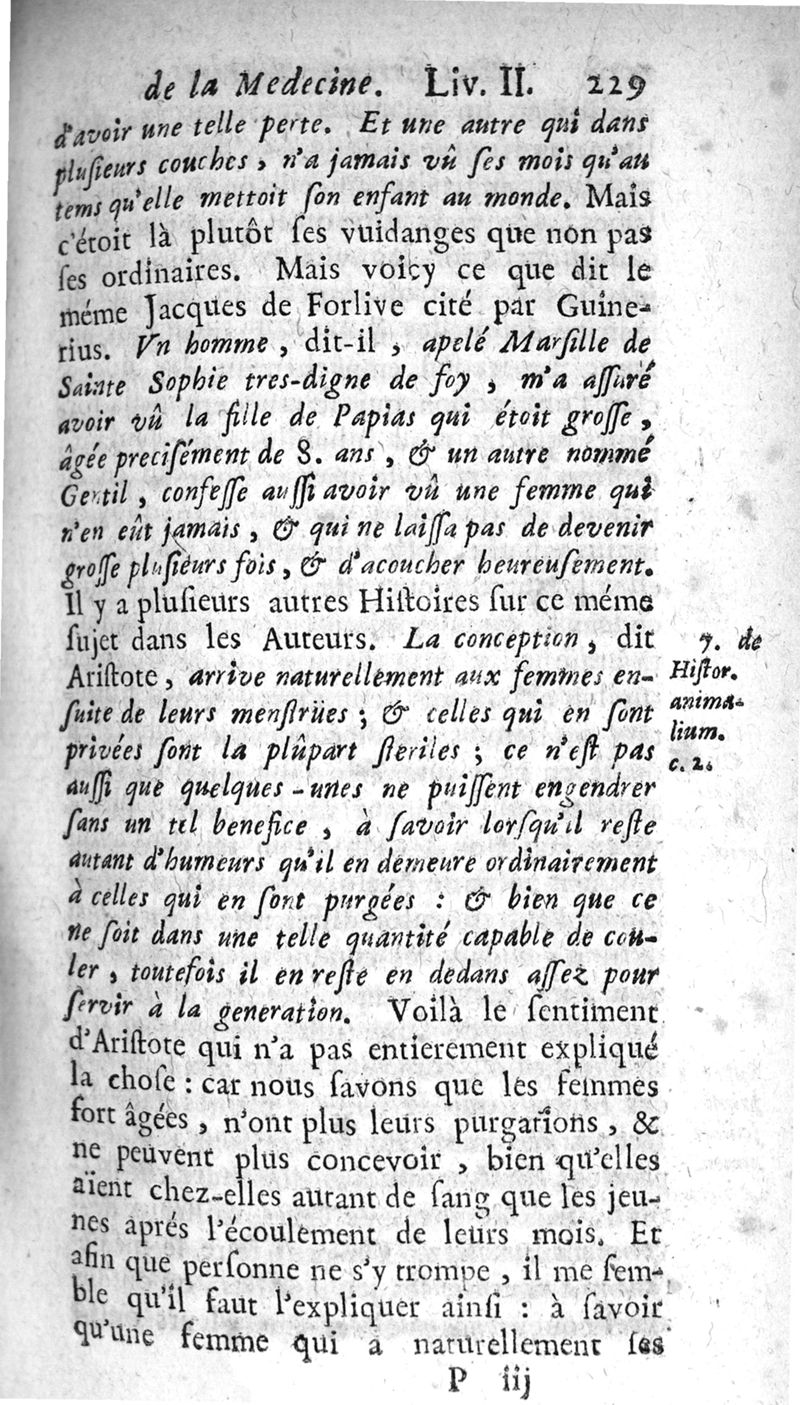 de la Medecine. Liv. II. 229
d'avoir une telle perte. Et une autre qui dans
pluſieurs couches, n'a jamais vû ſes mois qu'au
tems qu'elle mettoit ſon enfant au monde. Mais
c'étoit là plutôt ſes vuidanges que non pas
ſes ordinaires. Mais voicy ce que dit le
méme Jacques de Forlive cité par Guine-
rius. Vn homme, dit-il, apelé Marſille de
Sainte Sophie tres-digne de foy, m'a aſſuré
avoir vû la fille de Papias qui étoit groſſe,
âgée preciſément de 8. ans, & un autre nommé
Gentil, confeſſe auſſi avoir vû une femme qui
n'en eût jamais, & qui ne laiſſa pas de devenir
groſſe pluſieurs fois, & d'acoucher heureuſement.
Il y a pluſieurs autres Hiſtoires ſur ce méme
ſujet dans les Auteurs. La conception, dit
Ariſtote, arrive naturellement aux femmes en-
ſuite de leurs menſtrües; & celles qui en ſont
privées ſont la plûpart ſteriles; ce n'eſt pas
auſſi que quelques-unes ne puiſſent engendrer
ſans un tel benefice, à ſavoir lorſqu'il reſte
autant d'humeurs qu'il en demeure ordinairement
à celles qui en ſont purgées: & bien que ce
ne ſoit dans une telle quantité capable de cou-
ler, toutefois il en reſte en dedans aſſez pour
ſervir à la generation. Voilà le ſentiment
d'Ariſtote qui n'a pas entierement expliqué
la choſe: car nous ſavons que les femmes
fort âgées, n'ont plus leurs purgations, &
ne peuvent plus concevoir, bien qu'elles
aïent chez-elles autant de ſang que les jeu-
nes aprés l'écoulement de leurs mois. Et
afin que perſonne ne s'y trompe, il me ſem-
ble qu'il faut l'expliquer ainſi: à ſavoir
qu'une femme qui a naturellement ſes
P iij
7. de
Hiſtor.
anima-
lium.
c. 2.